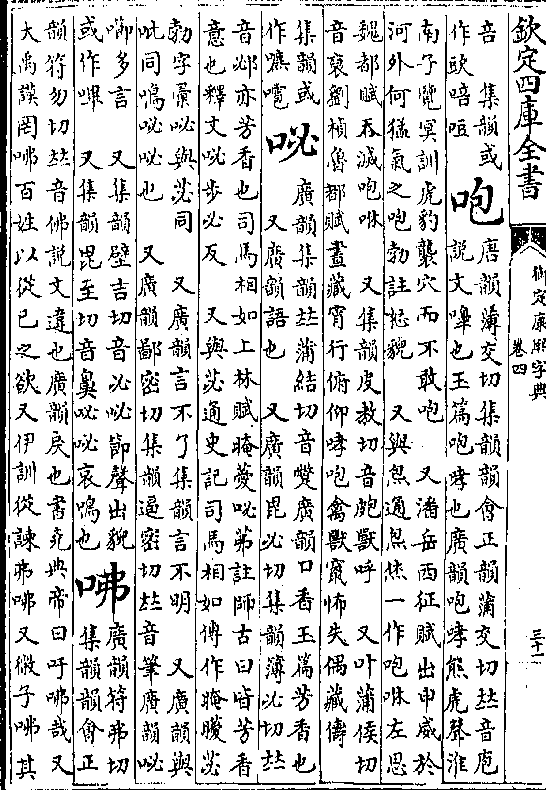 欽定四庫全書
御定康熙字典
卷四
三十一
音　集韻或
作㕻唔咺
咆
唐韻薄交切集韻韻會正韻蒲交切𠀤音庖
說文嘷也玉篇咆哮也廣韻咆哮熊虎聲淮
南子覽冥訓虎豹襲穴而不敢咆　又潘岳西征賦出申威於
河外何猛氣之咆勃註怒貌　又與炰通炰烋一作咆咻左思
魏都賦吞滅咆咻　又集韻皮敎切音皰獸呼　又叶蒲侯切
音裒劉楨魯都賦晝藏宵行俯仰哮咆禽獸竄怖失偶藏儔
集韻或
作
咇
廣韻集韻𠀤蒲結切音蹩廣韻口香玉篇芳香也
又廣韻語也　又廣韻毘必切集韻簿必切𠀤
音邲亦芳香也司馬相如上林賦晻薆咇茀註師古曰皆芳香
意也釋文咇步必反　又與苾通史記司馬相如傳作晻曖苾
勃字彙咇與苾同　又廣韻言不了集韻言不明　又廣韻與
吡同鳴咇咇也　又廣韻鄙密切集韻逼密切𠀤音筆廣韻咇
㘉多言　又集韻壁吉切音必咇節聲出貌
或作嗶　又集韻毘至切音鼻咇咇哀鳴也
咈
廣韻符弗切
集韻韻會正
韻符勿切𠀤音佛說文違也廣韻戾也書堯典帝曰吁咈哉又
大禹謨罔咈百姓以從已之欲又伊訓從諫弗咈又微子咈其